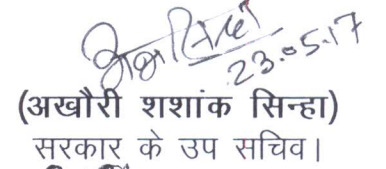 23.05.17
(अखौरी शशांक सिन्हा)
सरकार के उप सचिव।